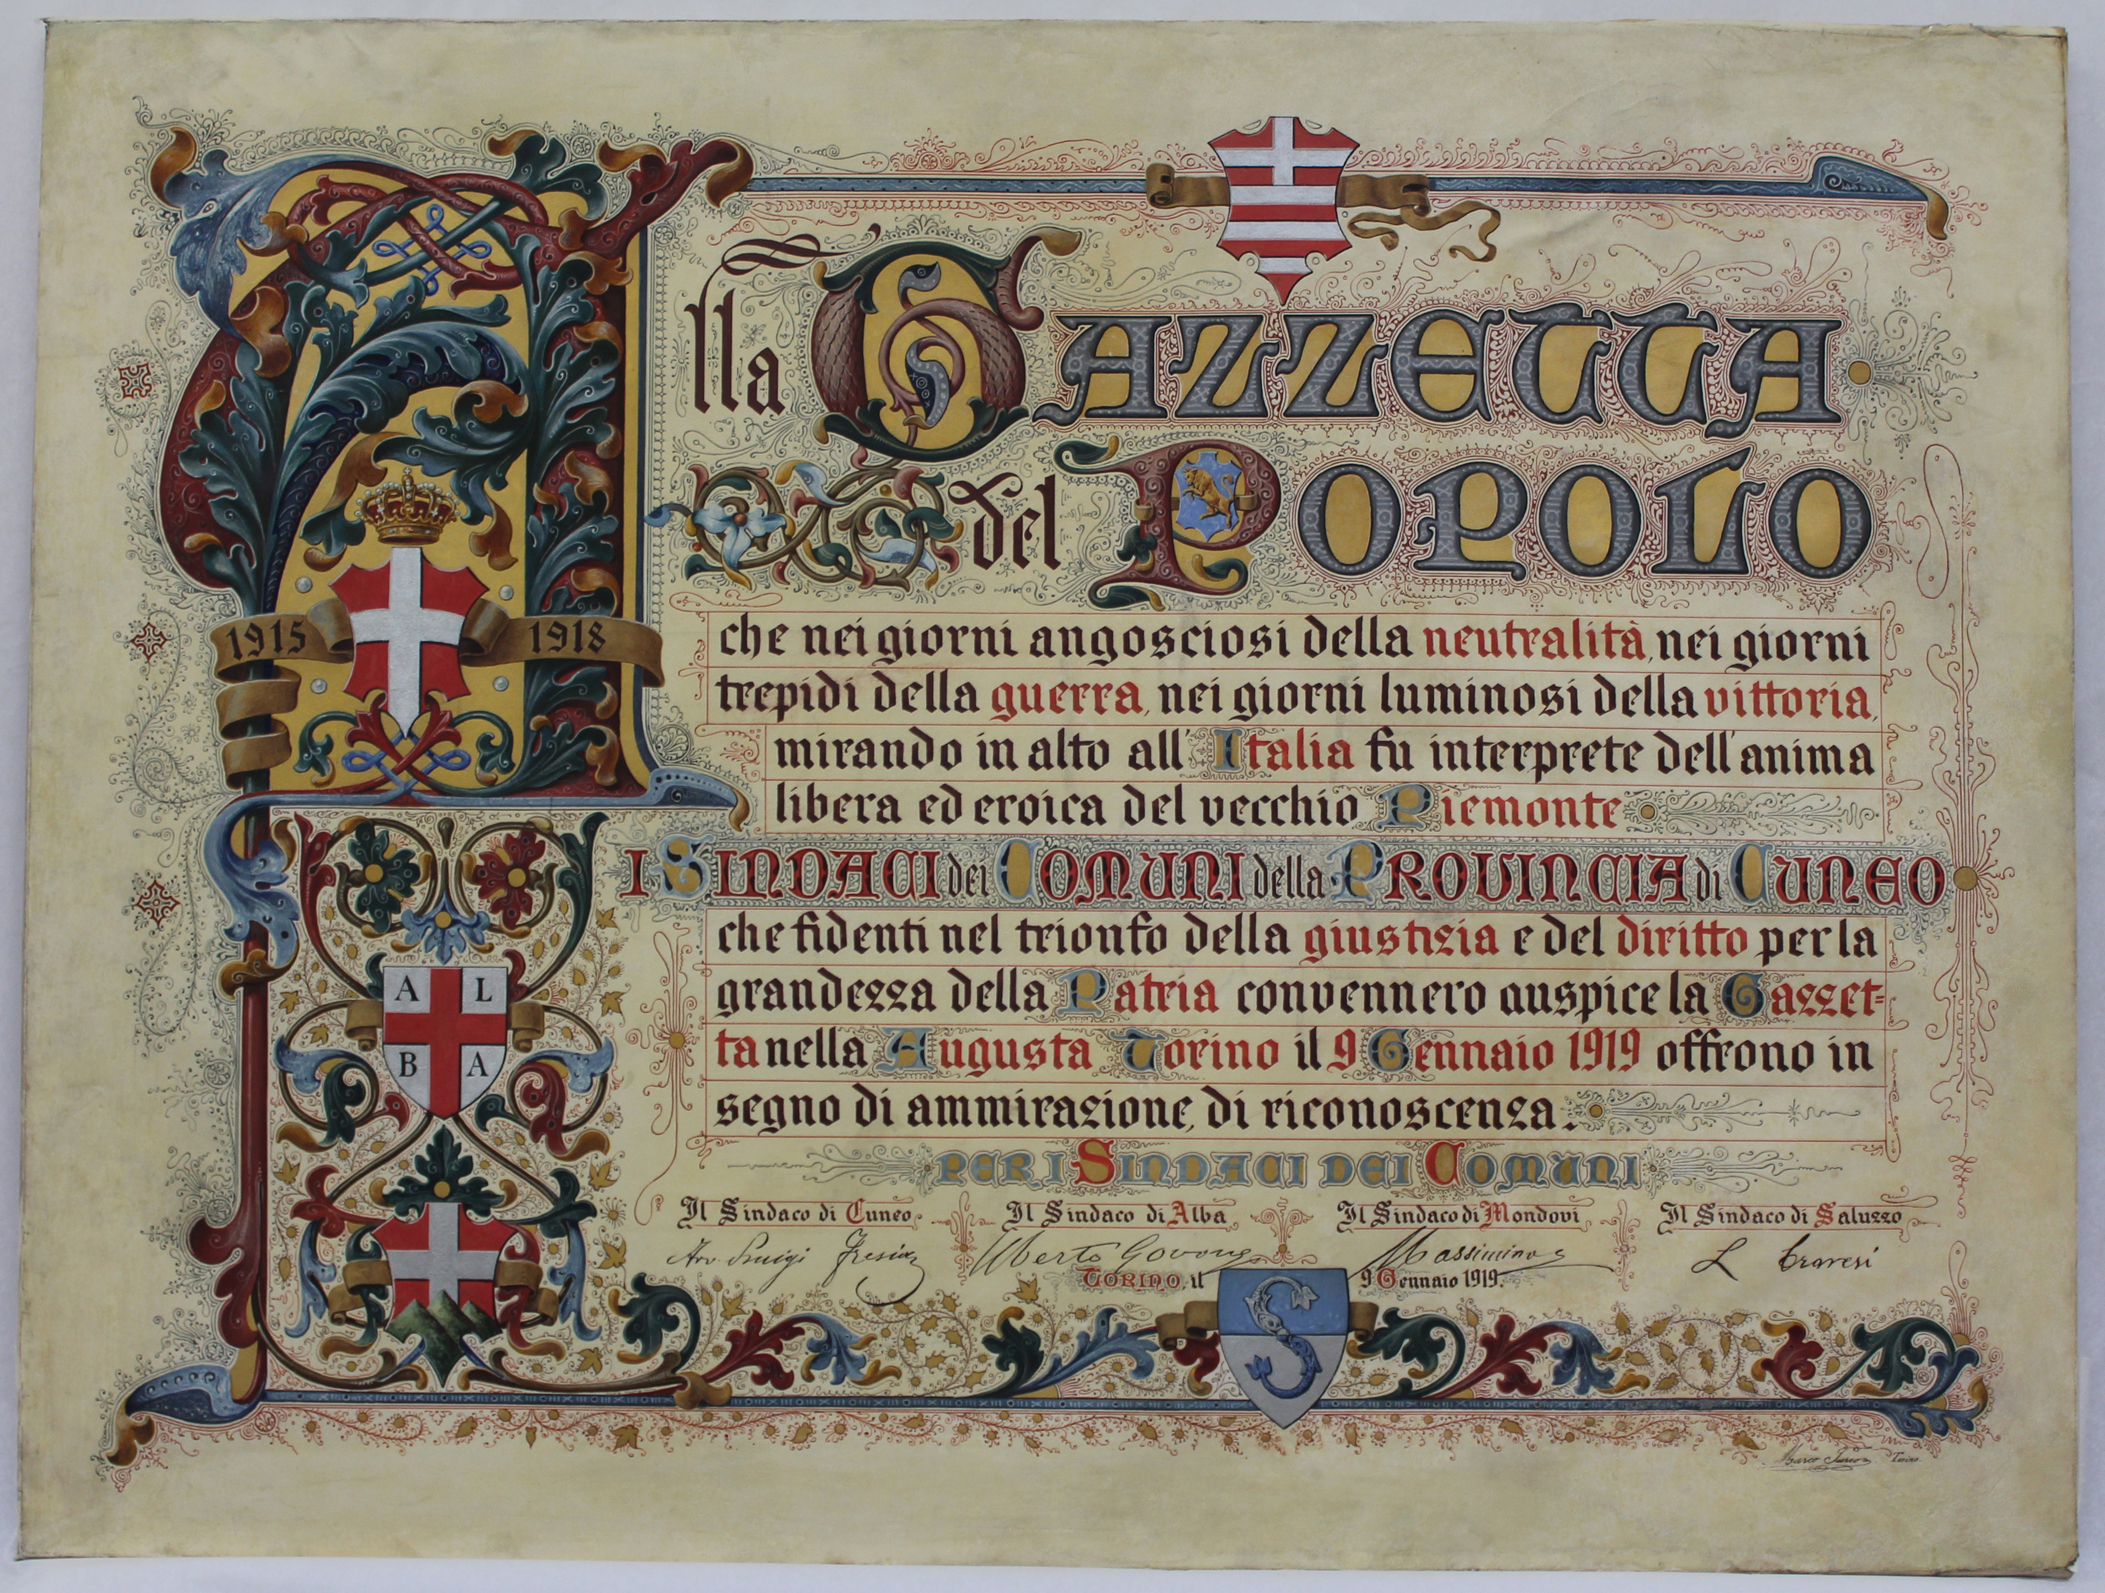 Alla GAZZETTA
del POPOLO
1915 1918
che nei giorni angosciosi della neutralità, nei giorni
trepidi della guerra, nei giorni luminosi della vittoria,
mirando in alto all'Italia fu interprete dell'anima
libera ed eroica del vecchio Piemonte
I SINDACI dei COMUNI della PROVINCIA di CUNEO
che fidenti nel trionfo della giustizia e del diritto per la
grandezza della Patria convennero auspice la Gazzet=
ta nella Augusta Torino il 9 Gennaio 1919 offrono in
segno di ammirazione, di riconoscenza.
A L
B A
PER I SINDACI DEI COMUNI
Il Sindaco di Cuneo Il Sindaco di Alba Il Sindaco di Mondovì Il Sindaco di Saluzzo
Avv. Luigi Fresia Massimino L
TORINO, il 9 Gennaio 1919.
S
Marco Torino